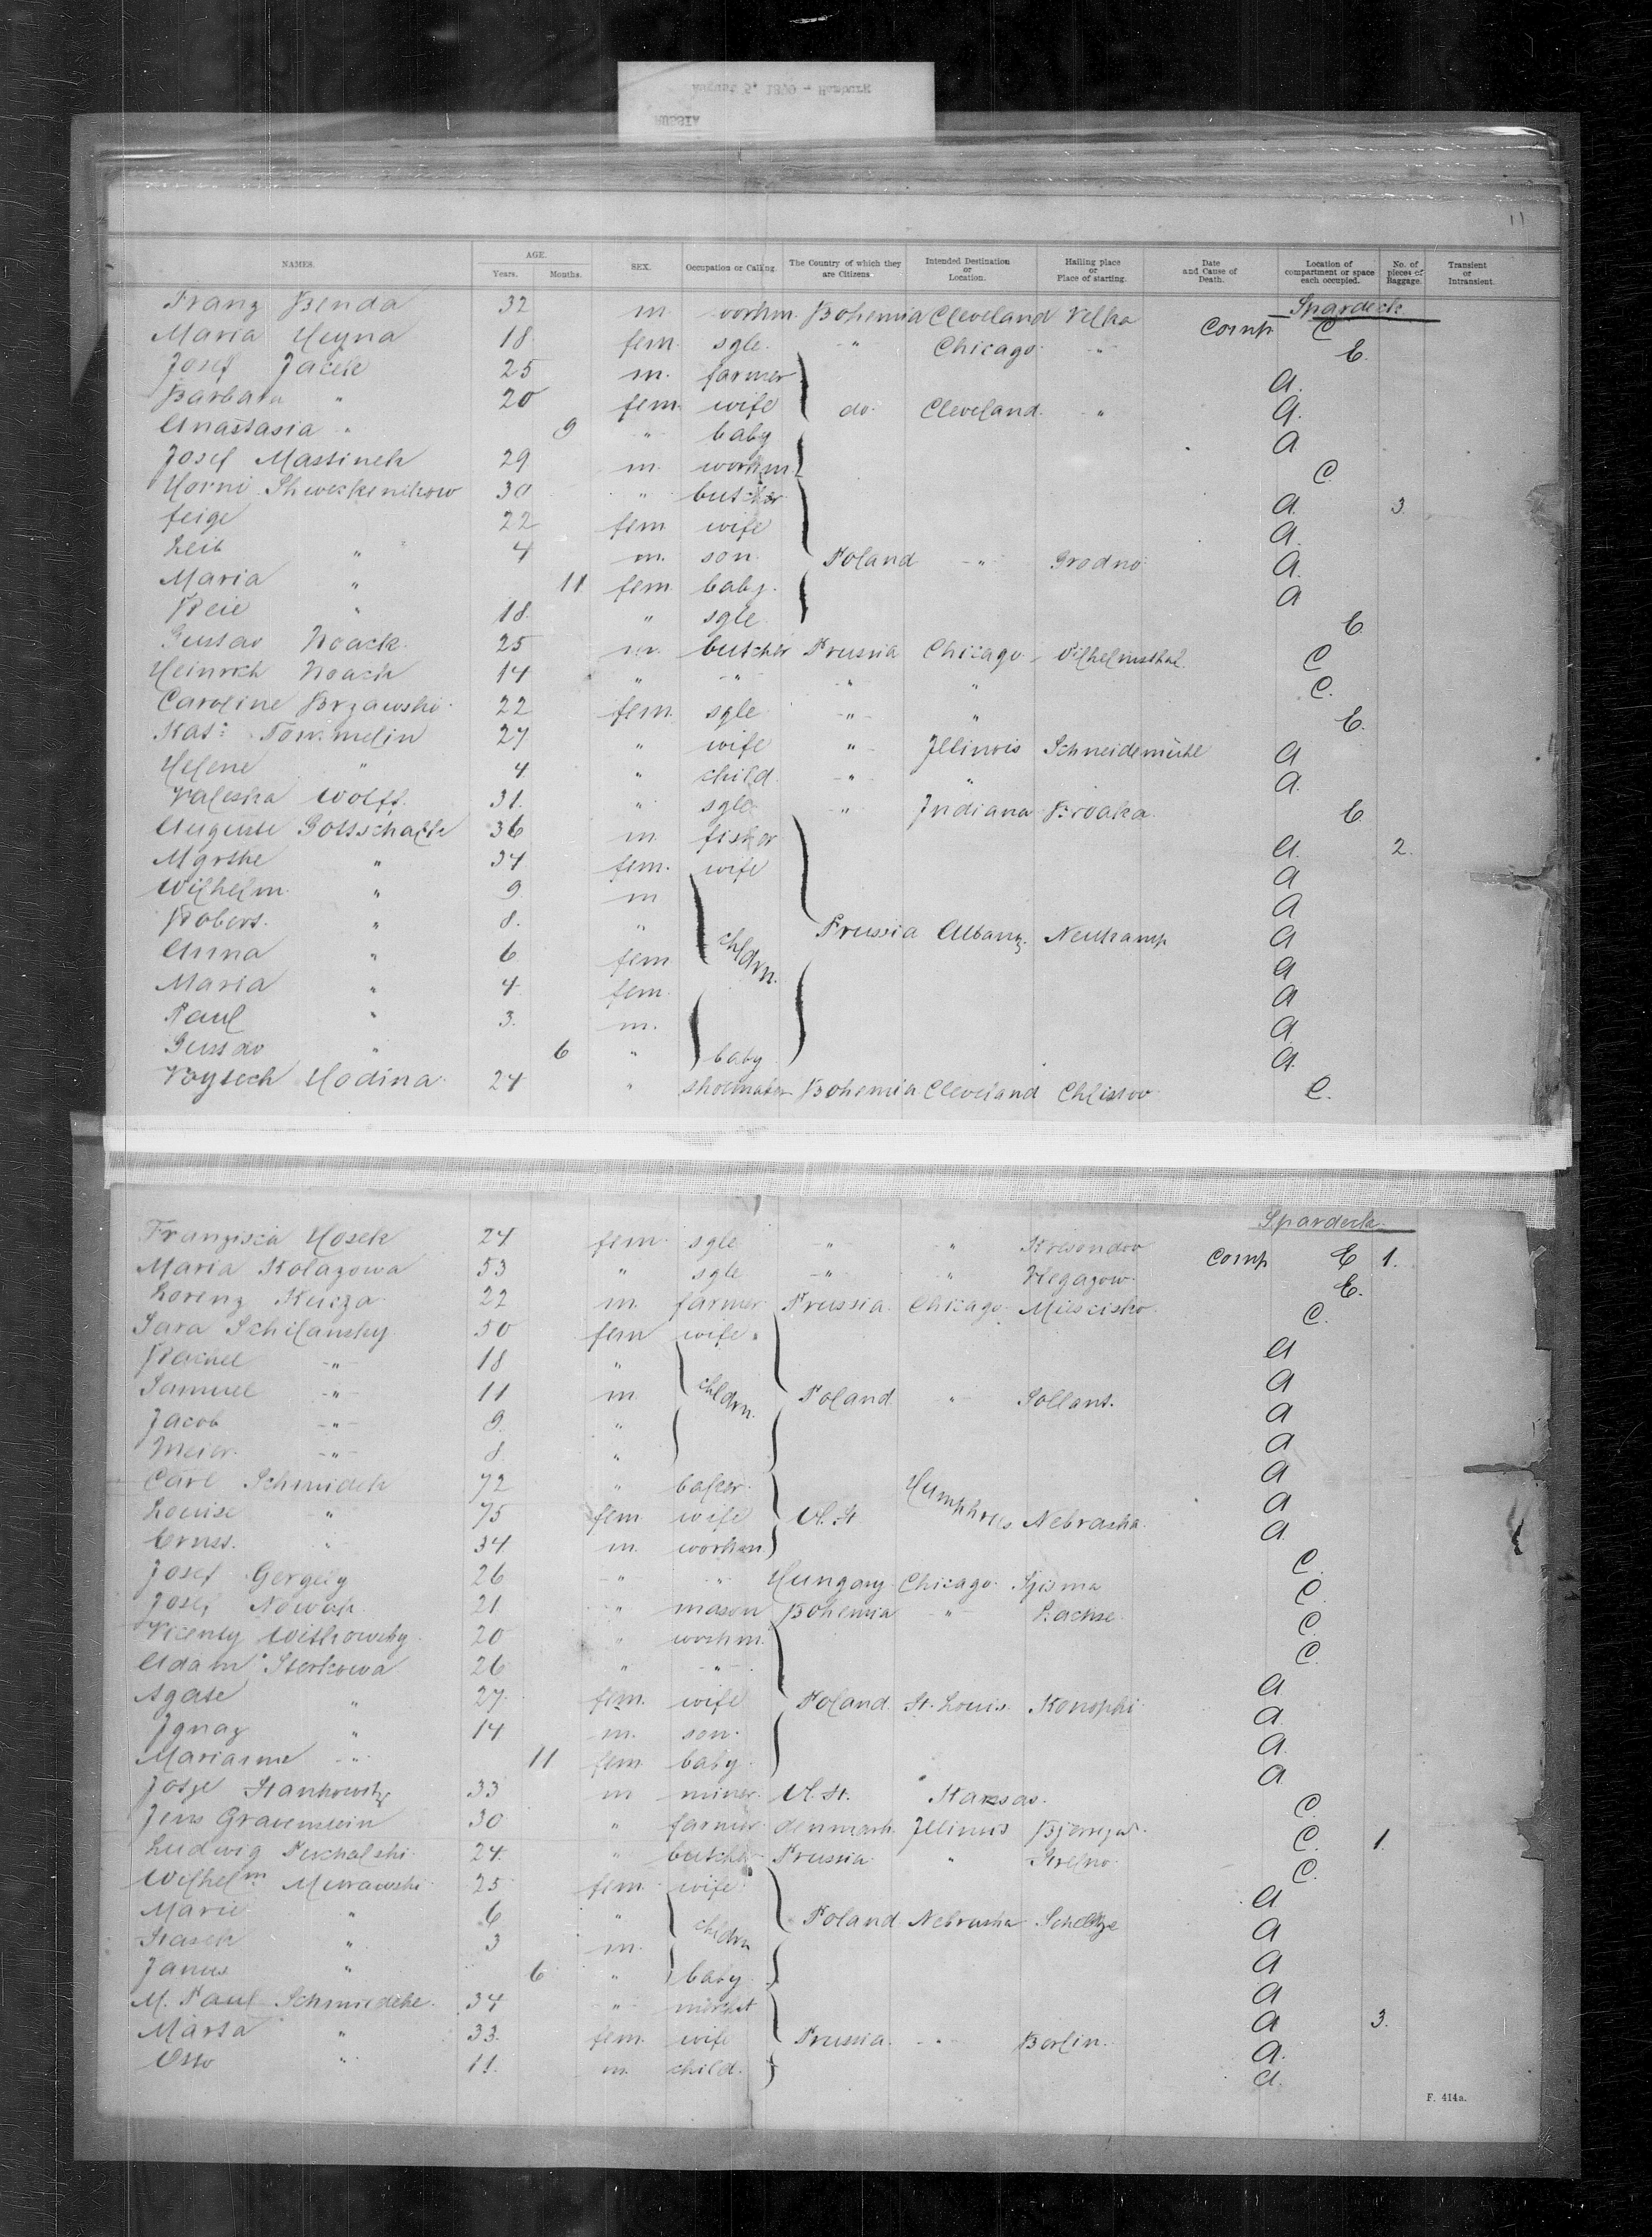 RUSSIA
August 5, 1890 - Hamburg
11
NAMES. AGE. Years. Months. SEX. Occupation or Calling. The Country of which they are Citizens. Intended Destination or Location. Hailing place or Place of starting. Date and Cause of Death. Location of compartment or space each occupied. No. of pieces of Baggage. Transient or Intransient.
Spardeck
Franz Benda 32 m. workm. Bohemia Cleveland Velka Comp C
Maria Heyna 18 fem. sgle. " Chicago " E.
Josef Jacek 25 m. farmer a.
Barbara " 20 fem. wife do. Cleveland " a.
Anastasia " 9 " baby a
Josef Mastinek 29 m. workm. C
30 " butcher a 3.
feige 22 fem wife a.
Leib " 4 m. son. Poland " Grodno a.
Maria " 11 fem baby. a
" 18 " sgle. E.
Gustav Noack 25 m. butcher Prussia Chicago Vilhelmsthal C
Heinrich Noack 14 " " " " C.
Caroline Brzawski 22 fem. sgle " " E.
Kat: 27 " wife " Illinois Schneidemühl a
Helene " 4 " child. " " a.
Valeska Wolff. 31. " sgle " Indiana E.
Auguste Gottschalk 36 m. fisher a. 2.
Myrthe " 34 fem. wife a
Wilhelm " 9 m a
Robert. " 8. " chldrn. Prussia Albany. Neukamp a
Anna " 6 fem a
Maria " 4 fem. a
Paul " 3. m. a
Gustav " 6 " baby a.
Voytech Hodina 24 " shoemaker Bohemia Cleveland Chlistov C.
Spardeck
Franzisca Hosek 24 fem. sgle " " Comp E 1.
Maria Kolazowa 53 " sgle " " E.
Lorenz Kucza 22 m. farmer Prussia Chicago Miescisko C.
Sara Schilansky 50 fem wife a
Rachel " 18 " a
Samuel " 11 m. chldrn. Poland " a
Jacob " 9. " a
Meier. " 8. " a
Carl Schmidek 72 " baker. a
Louise " 75 fem wife U. St Humphries Nebraska a
Ernst. " 34 m. workm. C.
Josef Gergely 26 " " Hungary Chicago C.
Josef Nowak 21 " mason Bohemia " C.
Vicenty Witkowsky 20 " workm. C.
Adam Sterkowa 26 " " a
Agate " 27 fem. wife Poland St. Louis a
Ignaz " 14 m. son. a
Marianne " 11 fem baby a
33 m miner. U. St. Kansas. C.
Jens Gravenstein 30 " farmer denmark Illinois C. 1.
Ludwig 24. " butcher Prussia " Strelno C.
Wilhelm. Murawski 25 fem. wife a
Marie " 6 " chldrn Poland Nebraska a
Stasek " 3 m. a
Janus " 6 " baby a
M. Paul Schmiedeke. 34 " mercht a 3.
Marta " 33 fem. wife Prussia. " Berlin. a.
Otto " 11. m. child. a.
F. 414a.